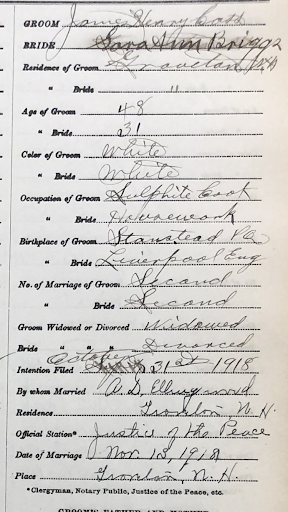 GROOM James Henry
BRIDE Sara Ann Briggs
Residence of Groom Groveton NH
" Bride "
Age of Groom 48
" Bride 31
Color of Groom White
" Bride White
Occupation of Groom Sulphite Cook
" Bride Housework
Birthplace of Groom Stanstead P.Q.
" Bride Liverpool Eng
No. of Marriage of Groom Second
" Bride Second
Groom Widowed or Divorced Widowed
Bride " " " Divorced
October
Intention Filed 31st 1918
By whom Married A. D. Ellingwood
Residence N. H.
Official Station* Justice of the Peace
Date of Marriage Nov 13, 1918
Place N. H.
*Clergyman, Notary Public, Justice of the Peace, etc.
GROOM'S FATHER AND MOTHER